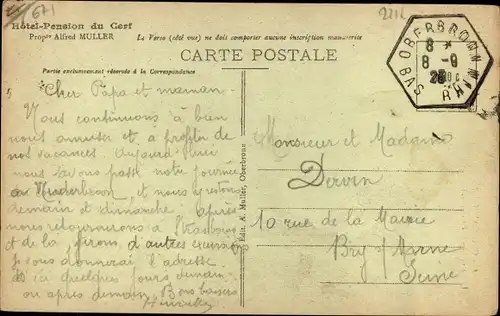 671
2212
Hôtel-Pension du Cerf
Propre Alfred MULLER
Le Verso (côté vue) ne doit comporter aucune inscription manuscrite
CARTE POSTALE
Partie exclusivement réservée à la Correspondance
OBERBRONN
8 *
8 -9
28
BAS RHIN
Cher Papa et maman.
Nous continuons à bien
nous amuser et à profiter de
nos vacances. Aujourd'hui
nous avons passé notre journée
à Niederbronn, et nous y restons
demain et dimanche après
nous retournerons à Strasbourg
et de là ferons d'autres excursions
je vous donnerai l'adresse
d'ici quelques jours demain
ou après demain. Bons baisers
Édit. A. Muller, Oberbronn
Monsieur et Madame
10 rue de la Mairie
Bry s/ Marne
Seine